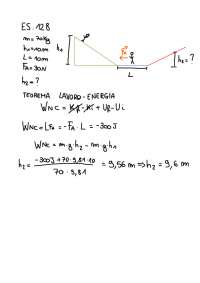 ES. 128
m = 70Kg
h₁ = 10m
L = 10m
Fₐ = 30N
h₂ = ?
h₁
Fₐ
L
h₂ = ?
TEOREMA LAVORO-ENERGIA
W_NC = K_f - K_i + U_f - U_i
W_NC = L_FA = - F_A · L = - 300J
W_NC = m·g·h₂ - m·g·h₁
h₂ = (-300J + 70·9,81·10) / (70·9,81) = 9,56m ⇒ h₂ = 9,6m